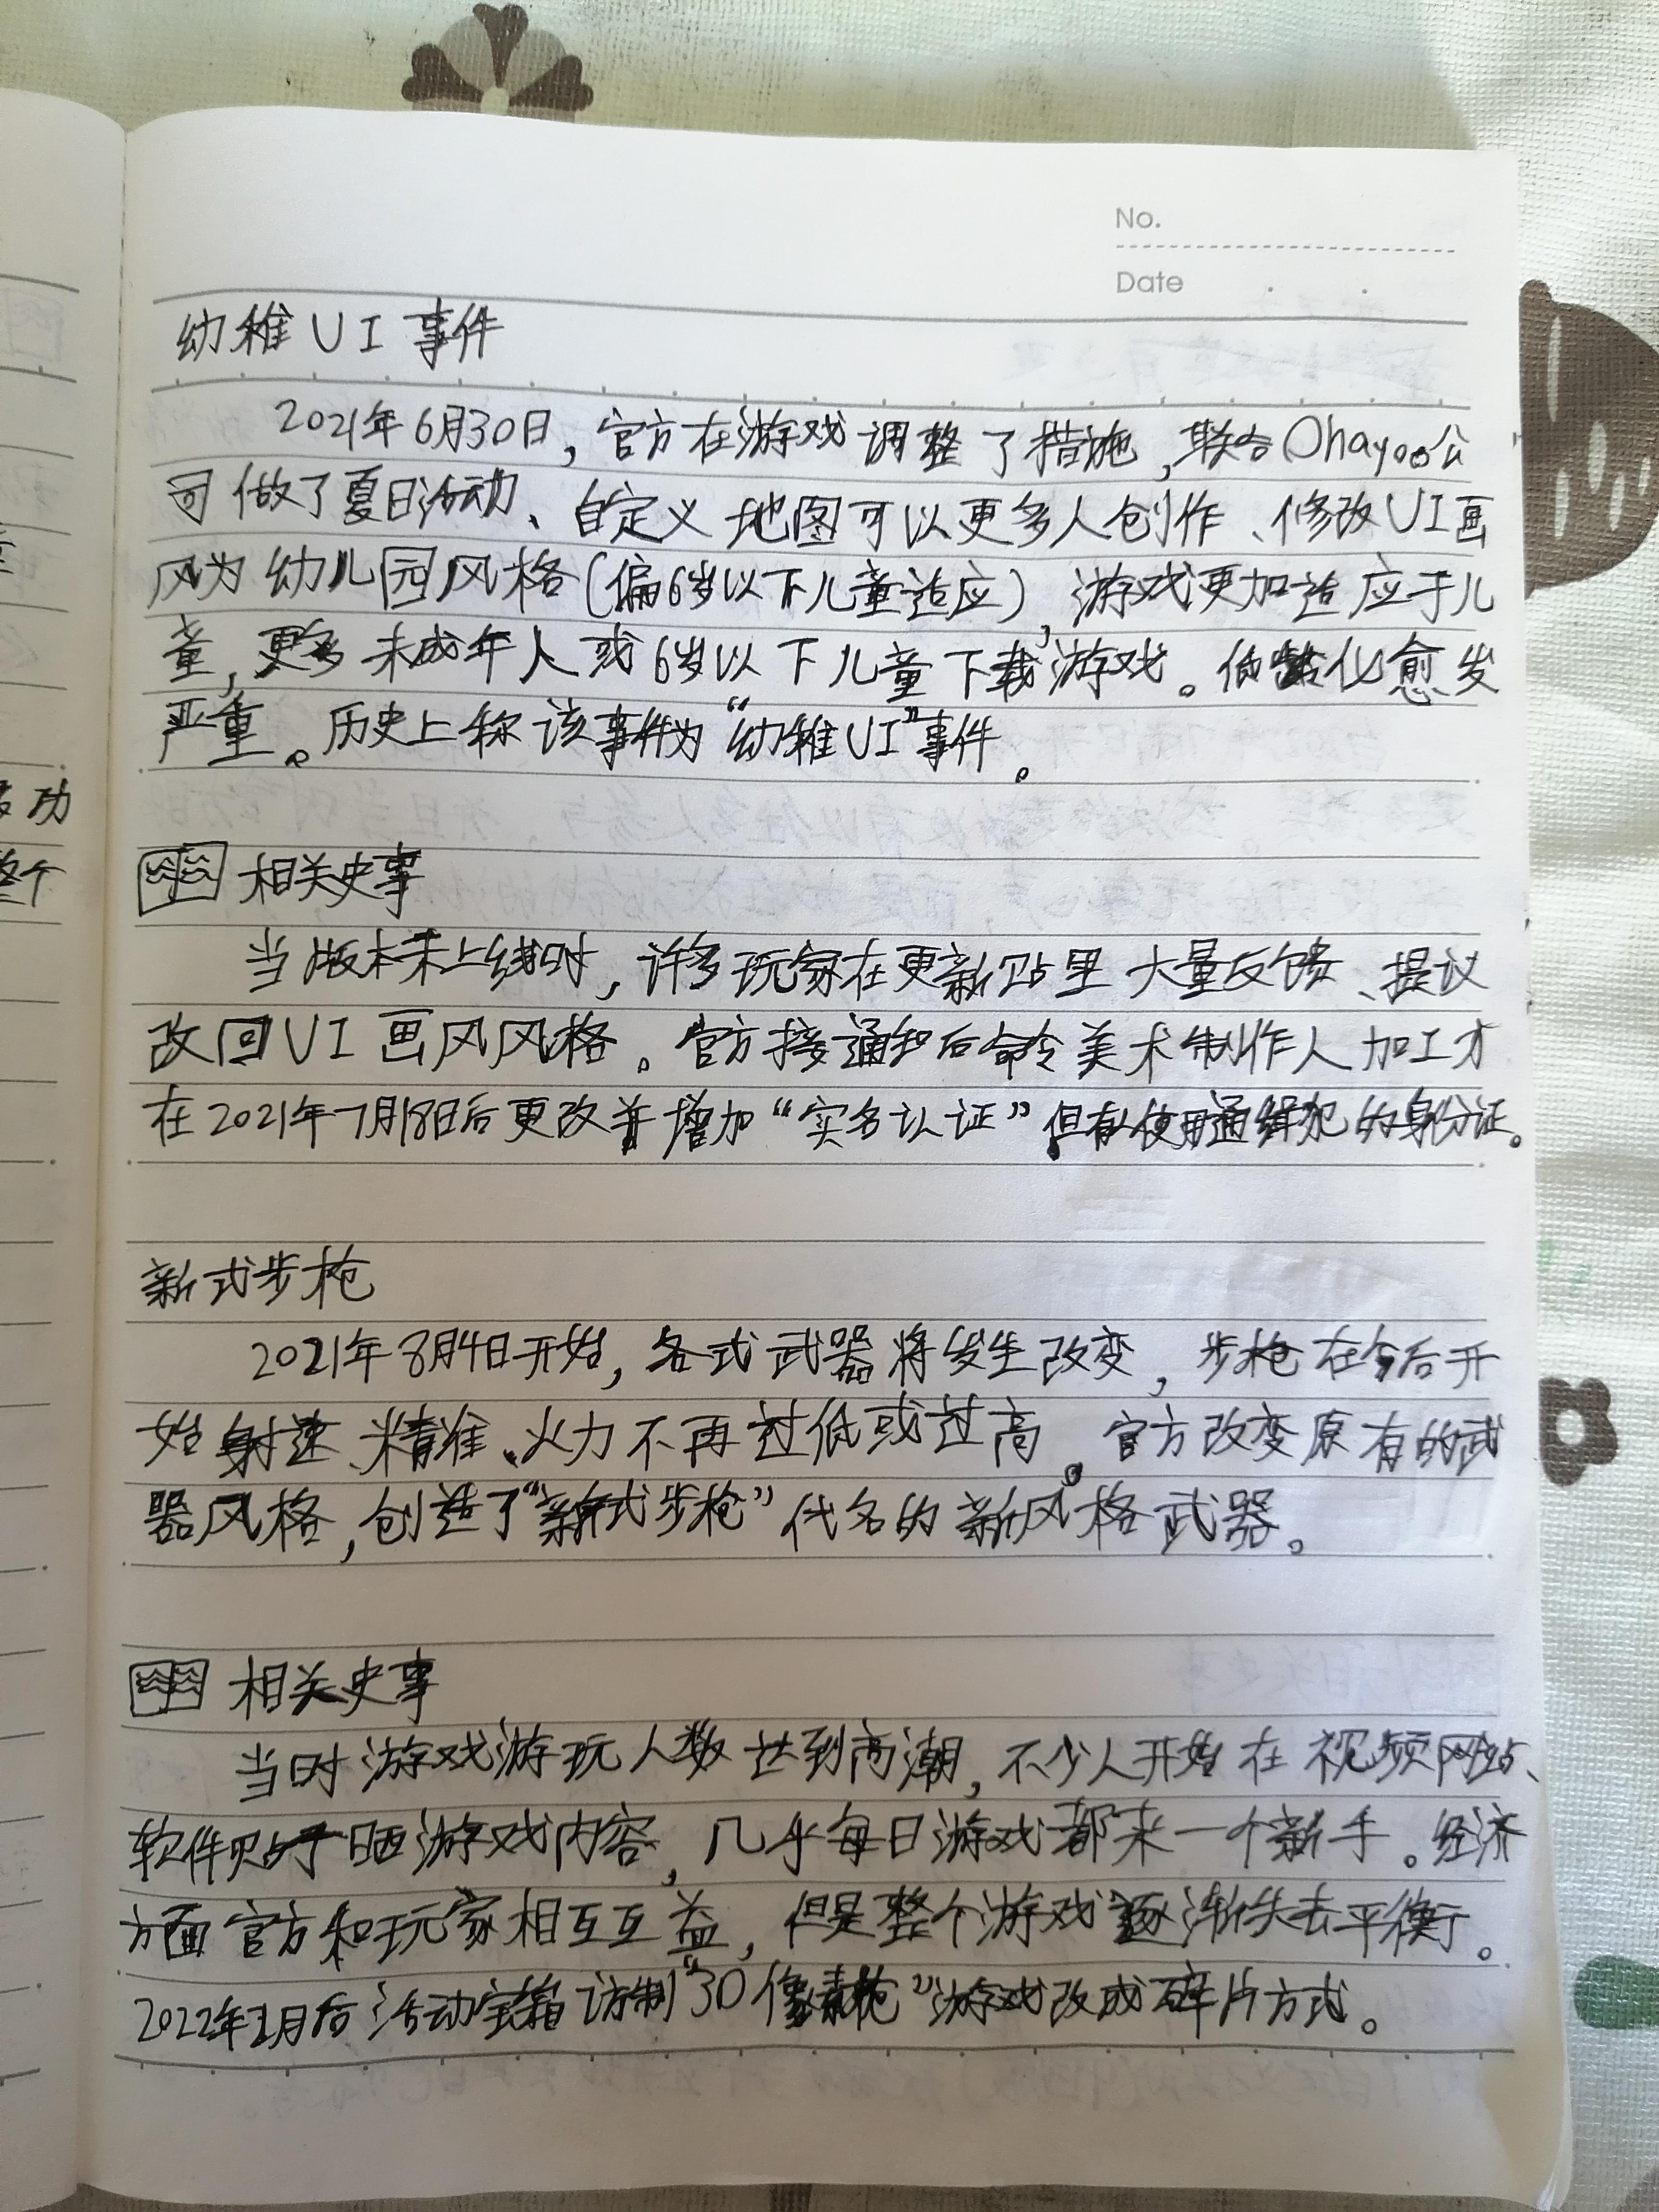 No.
Date
幼稚UI事件
2021年6月30日,官方在游戏调整了措施,联合Ohayoo公
司做了夏日活动、自定义地图可以更多人创作、修改UI画
风为幼儿园风格(偏6岁以下儿童适应),游戏更加适应于儿
童,更多未成年人或6岁以下儿童下载游戏。低龄化愈发
严重。历史上称该事件为“幼稚UI”事件。
相关史事
当版本未上线时,许多玩家在更新贴里大量反馈、提议
改回UI画风风格。官方接通知后命令美术制作人加工才
在2021年7月18日后更改并增加“实名认证”但有人使用通缉犯的身份证。
新式步枪
2021年8月4日开始,各式武器将发生改变,步枪在今后开
始射速、精准、火力不再过低或过高。官方改变原有的武
器风格,创造了“新式步枪”代名的新风格武器。
相关史事
当时游戏游玩人数达到高潮,不少人开始在视频网站、
软件贴于晒游戏内容,几乎每日游戏都来一个新手。经济
方面官方和玩家相互互益,但是整个游戏逐渐失去平衡。
2022年1月后活动宝箱访制“30像素枪”游戏改成碎片方式。
功
整个